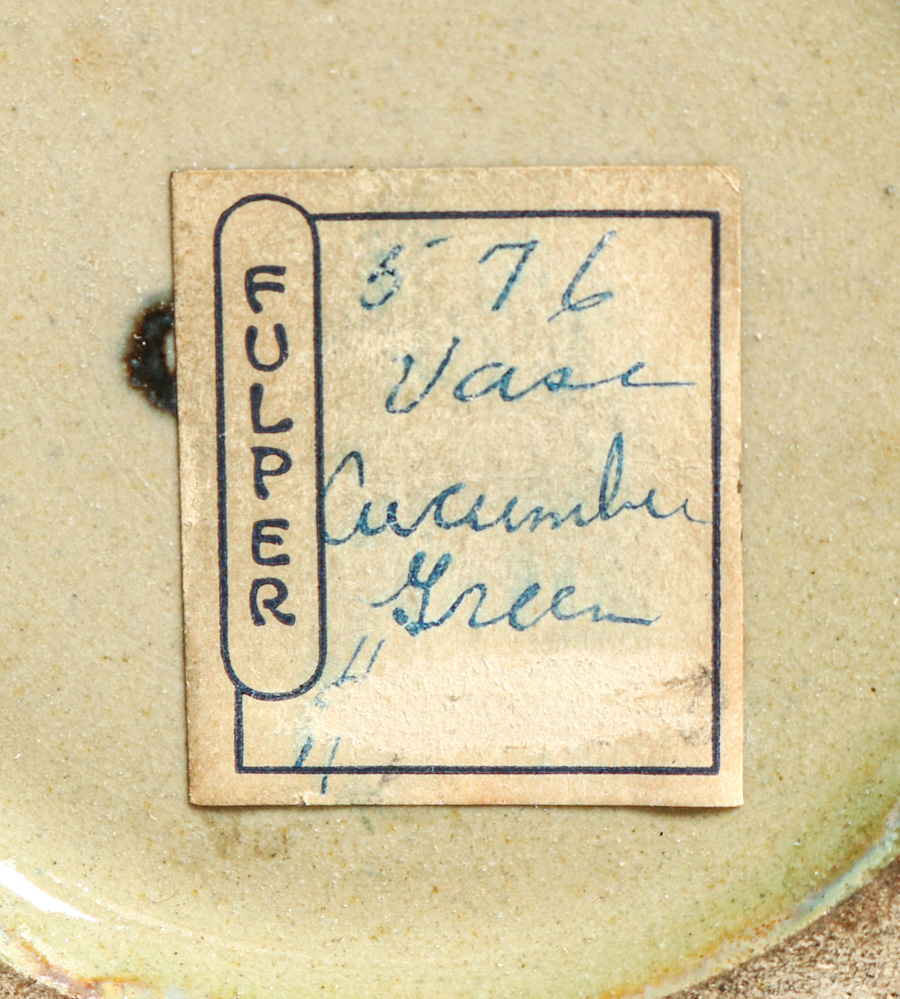 FULPER
576
Vase
Cucumber
Green